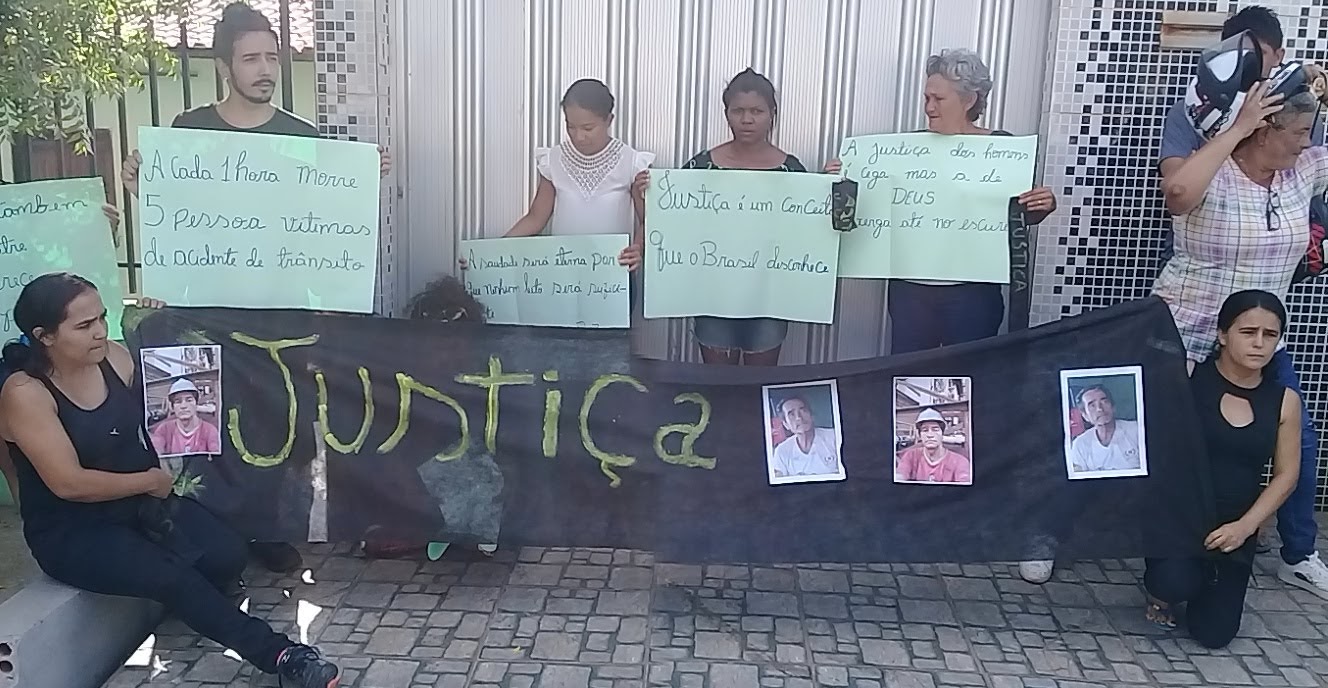 tambem
A Cada 1 hora morre
5 pessoa vitimas
de acidente de trânsito
A saudade será eterna por
que nenhum
será
Justiça é um conceito
que o Brasil desconhece
A justiça dos homens
é cega mas a de
DEUS
até no escuro
JUSTICA
Justiça